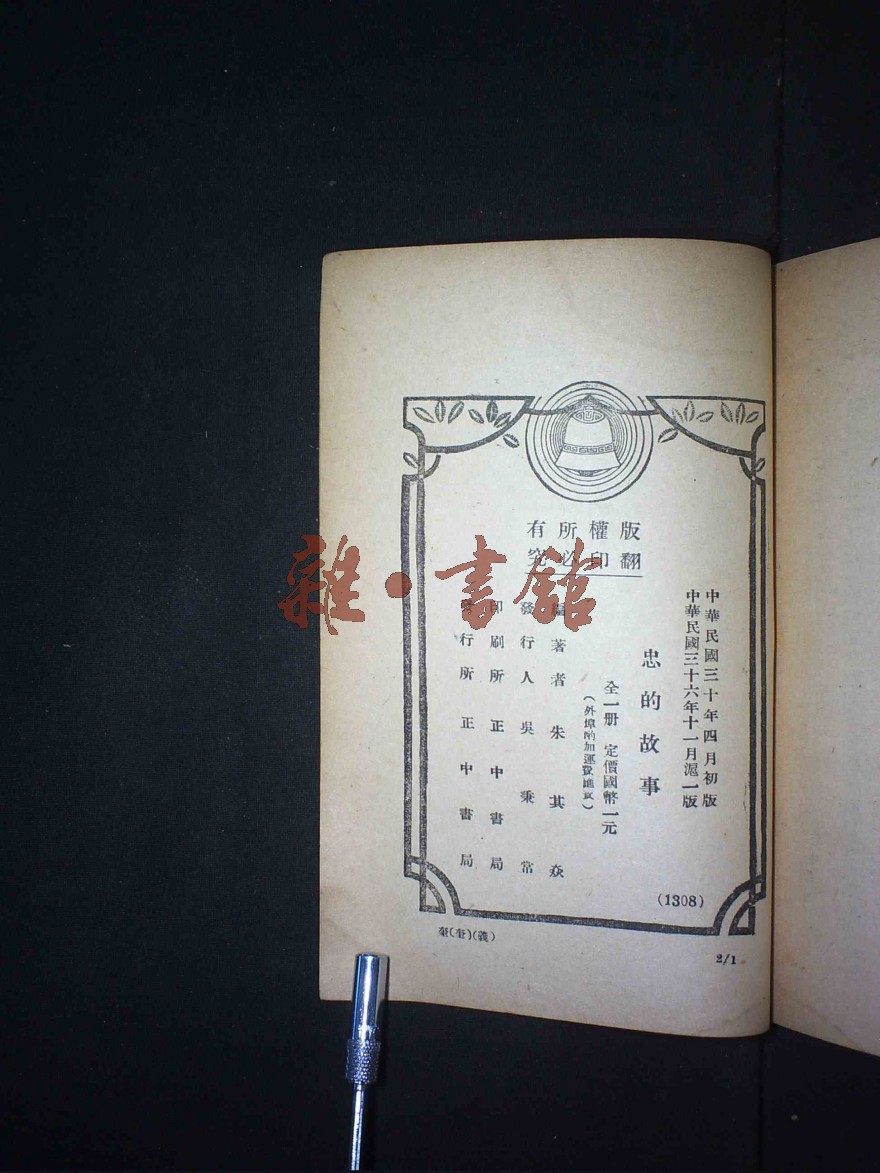 版權所有
翻印必究
中華民國三十年四月初版
中華民國三十六年十一月滬一版
忠的故事
全一册 定價國幣一元
(外埠酌加運費匯費)
編著者 朱其焱
發行人 吳秉常
印刷所 正中書局
發行所 正中書局
(1308)
2/1
雜·書館